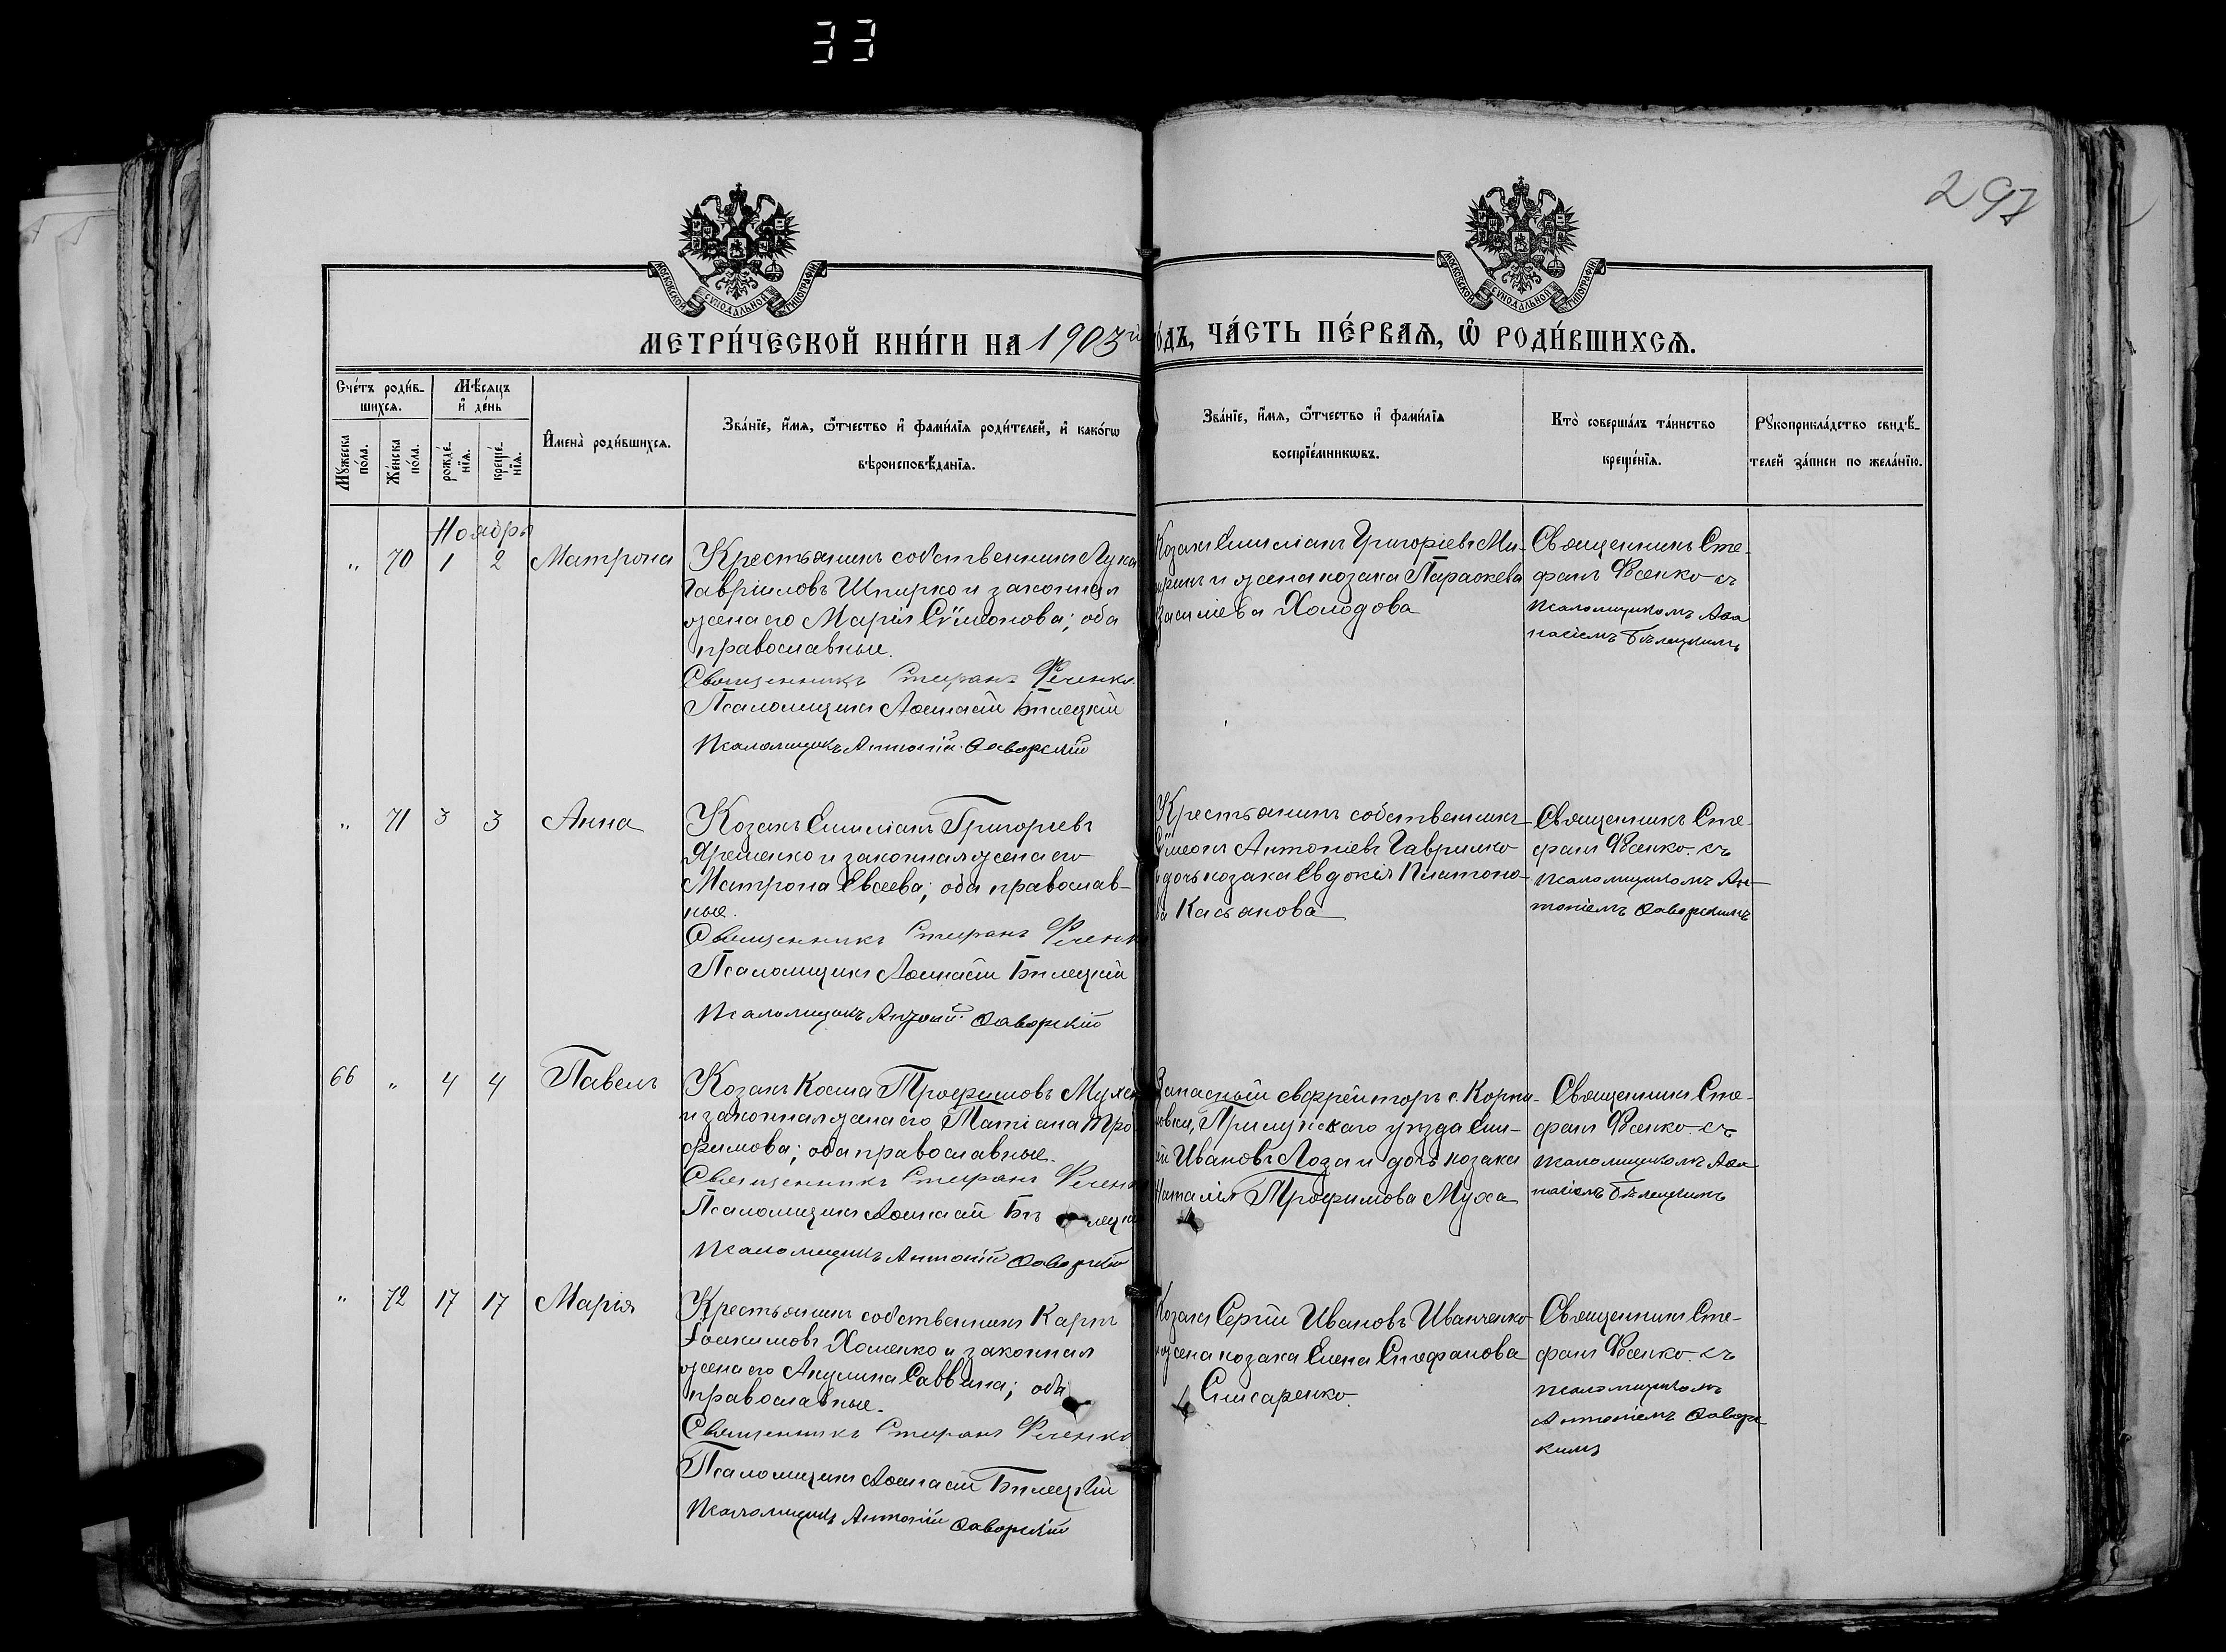 33
297
МОСКОВСКОЙ СѴНОДАЛЬНОЙ ТИПОГРАФІИ
МОСКОВСКОЙ СѴНОДАЛЬНОЙ ТИПОГРАФІИ
МЕТРИ́ЧЕСКОЙ КНИ́ГИ НА 1903й
О́ДЪ, ЧА́СТЬ ПЕ́РВАЯ, Ѡ҆ РОДИ́ВШИХСѦ.
Сче́тъ роди́в-
шихсѧ.
Мѣ́сѧцъ
и҆ де́нь
Мꙋ́жеска
по́ла.
Же́нска
по́ла.
рожде́-
нїѧ.
креще́-
нїѧ.
И҆мена̀ роди́вшихсѧ.
Зва́нїе, и҆́мѧ, ѻ҆́тчество и҆ фами́лїѧ роди́телей, и҆ како́гѡ
вѣроисповѣ́данїѧ.
Зва́нїе, и҆́мѧ, ѻ҆́тчество и҆ фами́лїѧ
воспрїе́мникѡвъ.
Кто̀ соверша́лъ та́инство
креще́нїѧ.
Рꙋкоприкла́дство свидѣ́-
телей за́писи по жела́нїю.
Ноябрь
" 70 1 2 Матрона
Крестьянинъ собственникъ Лука
Гавріиловъ Шпирко и законная
жена его Марія Сѵмеонова; оба
православные.
Священникъ Стефанъ Ѳеченко
Псаломщикъ Аѳанасій Бѣлецкій
Псаломщикъ Антоній Ѳаворскій
Козакъ Емиліанъ Григоріевъ Ми-
и жена козака Параскева
Василіева Холодова
Священникъ Сте-
фанъ Ѳеченко съ
псаломщикомъ Аѳа
насіемъ Бѣлецкимъ
" 71 3 3 Анна
Козакъ Емиліанъ Григоріевъ
Яременко и законная жена его
Матрона Евсеева; оба православ-
ные.
Священникъ Стефанъ Ѳеченк
Псаломщикъ Аѳанасій Бѣлецкій
Псаломщикъ Антоній Ѳаворскій
Крестьянинъ собственникъ
Сѵмеонъ Антоніевъ Гаврилко
и дочь козака Евдокія Платоно-
ва Касьянова
Священникъ Сте-
фанъ Ѳеченко съ
псаломщикомъ Ан-
тоніемъ Ѳаворскимъ
66 " 4 4 Павелъ
Козакъ Косма Трофимовъ
и законная жена его Татіана Тро
фимова; оба православные.
Священникъ Стефанъ Ѳеченк
Псаломщикъ Аѳанасій Бѣлецкі
Псаломщикъ Антоній Ѳаворскій
Запасный ефрейторъ с. Корни-
Прилукскаго уѣзда
Ивановъ Лоза и дочь козака
Наталія Трофимова Муха
Священникъ Сте-
фанъ Ѳеченко съ
псаломщикомъ Аѳа
насіемъ Бѣлецкимъ
" 72 17 17 Марія
Крестьянинъ собственникъ Карпъ
Іоакимовъ Хоменко и законная
жена его Акулина Саввина; оба
православные.
Священникъ Стефанъ Ѳеченко
Псаломщикъ Аѳанасій Бѣлецкій
Псаломщикъ Антоній Ѳаворскій
Козакъ Сергій Ивановъ Иванченко
и жена козака Елена Стефанова
Слисаренко.
Священникъ Сте-
фанъ Ѳеченко съ
псаломщикомъ
Антоніемъ Ѳаворс
кимъ